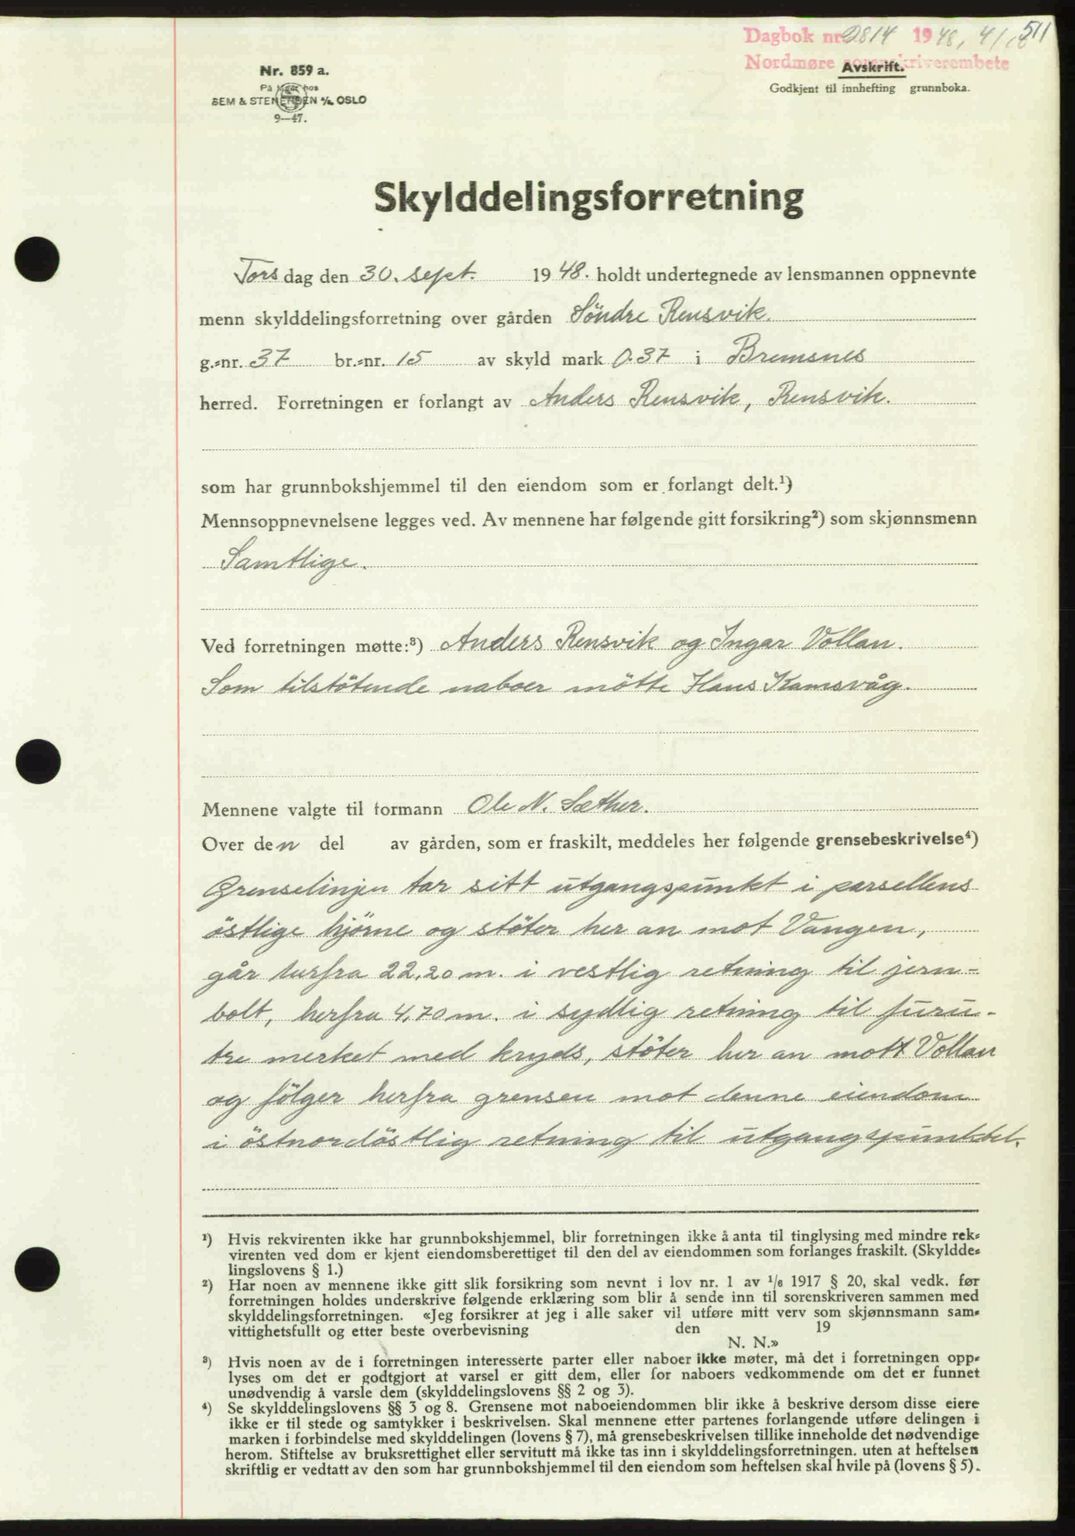 511
Dagbok nr. 2814 1948, 4/10
Nordmøre sorenskriverembete
Avskrift.
Godkjent til innhefting grunnboka.
Nr. 859 a.
På lager hos
SEM & STENERSEN A/S, OSLO
9—47.
Skylddelingsforretning
Torsdag den 30. sept. 1948. holdt undertegnede av lensmannen oppnevnte
menn skylddelingsforretning over gården Söndre Rensvik.
g.=nr. 37 br.=nr. 15 av skyld mark 0.37 i Bremsnes
herred. Forretningen er forlangt av Anders Rensvik, Rensvik.
som har grunnbokshjemmel til den eiendom som er forlangt delt.¹)
Mennsoppnevnelsene legges ved. Av mennene har følgende gitt forsikring²) som skjønnsmenn
Samtlige.
Ved forretningen møtte:³) Anders Rensvik og Ingar Vollan.
Som tilstötende naboer mötte Hans Kamsvåg.
Mennene valgte til formann Ole N. Sæther.
Over den del av gården, som er fraskilt, meddeles her følgende grensebeskrivelse⁴)
Grenselinjen tar sitt utgangspunkt i parsellens
östlige hjörne og stöter her an mot Vangen,
går herfra 22,20 m. i vestlig retning til jern-
bolt, herfra 4,70 m. i sydlig retning til furu-
tre merket med kryds, stöter her an mott Vollan
og fölger herfra grensen mot denne eiendom
i östnordöstlig retning til utgangspunktet.
¹) Hvis rekvirenten ikke har grunnbokshjemmel, blir forretningen ikke å anta til tinglysing med mindre rek=
virenten ved dom er kjent eiendomsberettiget til den del av eiendommen som forlanges fraskilt. (Skyldde=
lingslovens § 1.)
²) Har noen av mennene ikke gitt slik forsikring som nevnt i lov nr. 1 av 1/6 1917 § 20, skal vedk. før
forretningen holdes underskrive følgende erklæring som blir å sende inn til sorenskriveren sammen med
skylddelingsforretningen. «Jeg forsikrer at jeg i alle saker vil utføre mitt verv som skjønnsmann sam=
vittighetsfullt og etter beste overbevisning den 19
N. N.»
³) Hvis noen av de i forretningen interesserte parter eller naboer ikke møter, må det i forretningen opp=
lyses om det er godtgjort at varsel er gitt dem, eller for naboers vedkommende om det er funnet
unødvendig å varsle dem (skylddelingslovens §§ 2 og 3).
⁴) Se skylddelingslovens §§ 3 og 8. Grensene mot naboeiendommen blir ikke å beskrive dersom disse eiere
ikke er til stede og samtykker i beskrivelsen. Skal mennene etter partenes forlangende utføre delingen i
marken i forbindelse med skylddelingen (lovens § 7), må grensebeskrivelsen tillike inneholde det nødvendige
herom. Stiftelse av bruksrettighet eller servitutt må ikke tas inn i skylddelingsforretningen, uten at heftelsen
skriftlig er vedtatt av den som har grunnbokshjemmel til den eiendom som heftelsen skal hvile på (lovens § 5).